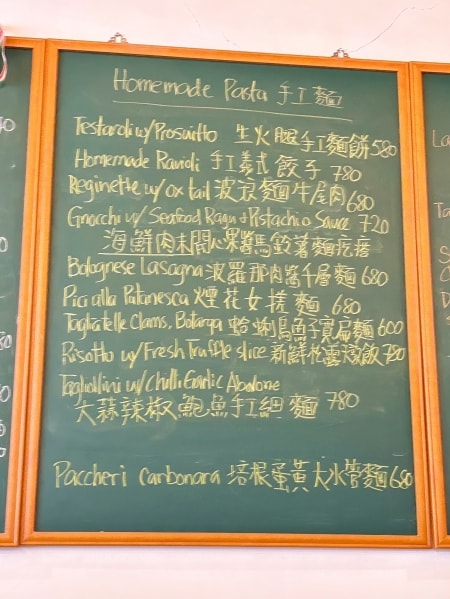 Homemade Pasta 手工麵
Testaroli w/Prosuitto 生火腿手工麵餅 580
Homemade Ravioli 手工義式餃子 780
Reginette w/ox tail 波浪麵牛尾肉 680
Gnocchi w/ Seafood Ragu & Pistachio Sauce 720
海鮮肉末開心果醬馬鈴薯麵疙瘩
Bolognese Lasagna 波羅那肉醬千層麵 680
Pici alla Putanesca 煙花女搓麵 680
Tagliatelle Clams, Botarga 蛤蜊烏魚子寬扁麵 600
Risotto w/Fresh Truffle slice 新鮮松露燉飯 780
Tagliollini w/Chilli Garlic Abalone
大蒜辣椒鮑魚手工細麵 780
Paccheri Carbonara 培根蛋黃大水管麵 680